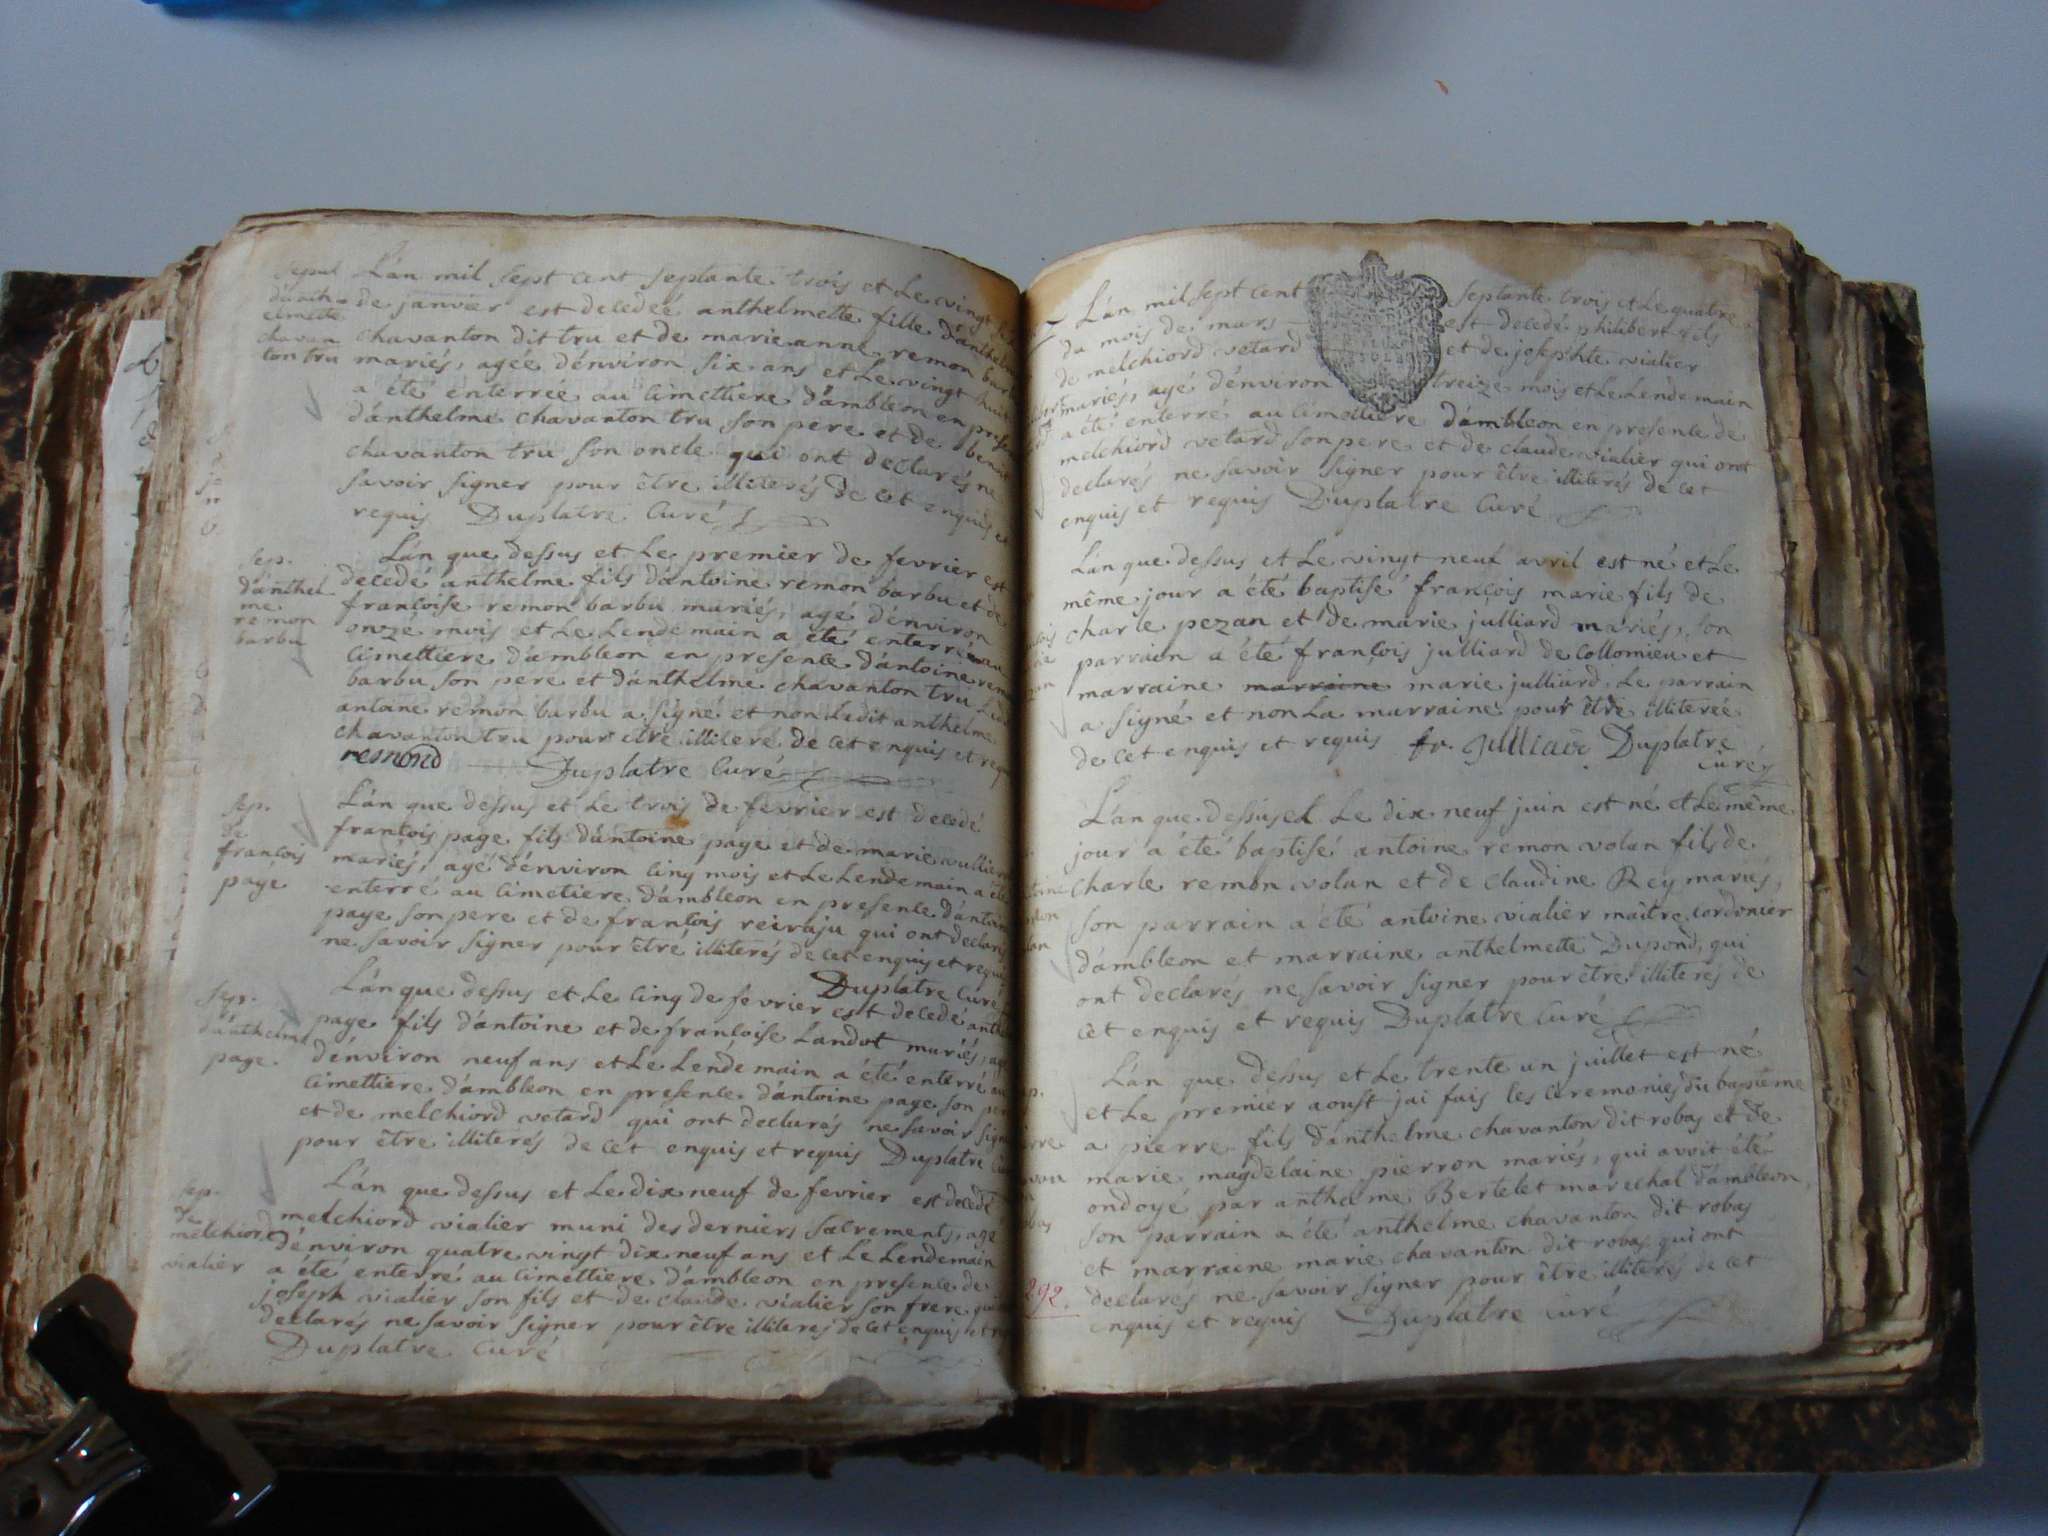 sepul
danth-
elmette
chavan
ton tru
L'an mil sept cent septante trois et le vingt
de janvier est decedée anthelmette fille d'anthelme
chavanton dit tru et de marie anne remon barbu
mariés, agée d'énviron six ans et le vingt huit
a été enterrée au cimettiere d'ambleon en presence
d'anthelme chavanton tru son pere et de benoit
chavanton tru son oncle qui ont declarés ne
savoir signer pour être illiterés de cet enquis et
requis Duplatre Curé
sep.
d'anthel
me
remon
barbu
L'an que dessus et le premier de fevrier est
decedé anthelme fils d'antoine remon barbu et de
françoise remon barbu mariés, agé d'énviron
onzé mois et le lendemain a été enterré au
cimettiere d'ambleon en presence d'antoine remon
barbu son pere et d'anthelme chavanton tru ledit
antoine remon barbu a signé et non ledit anthelme
chavanton tru pour etre illiteré de cet enquis et requis
remond Duplatre Curé
sep.
de
françois
page
L'an que dessus et le trois de fevrier est decedé
françois page fils d'antoine page et de marie vullierm
mariés, agé d'énviron cinq mois et le lendemain a été
enterré au cimetiere d'ambleon en presence d'antoine
page son pere et de françois reiraju qui ont declarés
ne savoir signer pour être illiterés de cet enquis et requis
Duplatre Curé
sep.
d'anthelme
page.
L'an que dessus et le cinq de fevrier est decedé anthelme
page fils d'antoine et de françoise Landot mariés, agé
d'énviron neuf ans et le lendemain a été enterré au
cimettiere d'ambleon en presence d'antoine page son pere
et de melchiord vetard qui ont declarés ne savoir signer
pour être illiterés de cet enquis et requis Duplatre Curé
sep.
de
melchiord
vialier
L'an que dessus et le dix neuf de fevrier est decedé
melchiord vialier muni des derniers sacrements, agé
d'énviron quatre vingt dix neuf ans et le lendemain
a été enterré au cimettiere d'ambleon en presence de
joseph vialier son fils et de claude vialier son frere qui
declarés ne savoir signer pour être illiterés de cet enquis et
Duplatre Curé
L'an mil sept cent septante trois et le quatre
du mois de mars est decedé philibert fils
de melchiord vetard et de josephte vialier
mariés, agé d'énviron treize mois et le lendemain
a été enterré au cimettiere d'ambleon en presence de
melchiord vetard son pere et de claude vialier qui ont
declarés ne savoir signer pour être illiterés de cet
enquis et requis Duplatre Curé
L'an que dessus et le vingt neuf avril est né et le
même jour a été baptisé françois marie fils de
charle pezan et de marie julliard mariés, son
parrain a été françois julliard de collomieu et
marraine marraine marie julliard le parrain
a signé et non la marraine pour être illiterée
de cet enquis et requis fr. julliard Duplatre
Curé
L'an que dessus et le dix neuf juin est né et le même
jour a été baptisé antoine remon volan fils de
charle remon volan et de claudine Rey mariés,
son parrain a été antoine vialier maître cordonier
d'ambleon et marraine anthelmette Dupond, qui
ont declarés ne savoir signer pour être illiterés de
cet enquis et requis Duplatre Curé
L'an que dessus et le trente un juillet est né
et le premier aoust jai fais les ceremonies du bapteme
a pierre fils d'anthelme chavanton dit robas et de
marie magdelaine pierron mariés, qui avoit été
ondoyé par anthelme Bertelet marechal d'ambleon,
son parrain a été anthelme chavanton dit robas
et marraine marie chavanton dit robas qui ont
declarés ne savoir signer pour être illiterés de cet
enquis et requis Duplatre curé
292.